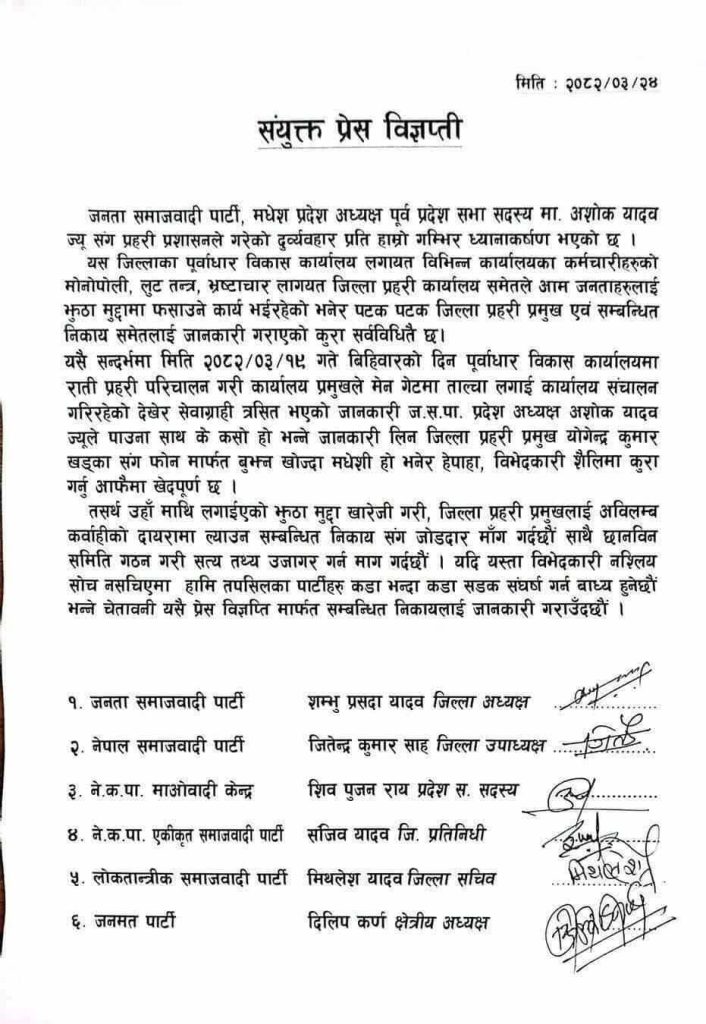 मिति : २०८२/०३/२४
संयुक्त प्रेस विज्ञप्ती
जनता समाजवादी पार्टी, मधेश प्रदेश अध्यक्ष पूर्व प्रदेश सभा सदस्य मा. अशोक यादव
ज्यू संग प्रहरी प्रशासनले गरेको दुर्व्यवहार प्रति हाम्रो गम्भिर ध्यानाकर्षाण भएको छ ।
यस जिल्लाका पूर्वाधार विकास कार्यालय लगायत विभिन्न कार्यालयका कर्मचारीहरुको
मोनोपोली, लुट तन्त्र, भ्रष्टाचार लागयत जिल्ला प्रहरी कार्यालय समेतले आम जनताहरुलाई
झुठा मुद्दामा फसाउने कार्य भईरहेको भनेर पटक पटक जिल्ला प्रहरी प्रमुख एवं सम्बन्धित
निकाय समेतलाई जानकारी गराएको कुरा सर्वविधितै छ।
यसै सन्दर्भमा मिति २०८२/०३/१९ गते बिहिवारको दिन पूर्वाधार विकास कार्यालयमा
राती प्रहरी परिचालन गरी कार्यालय प्रमुखले मेन गेटमा ताल्चा लगाई कार्यालय संचालन
गरिरहेको देखेर सेवाग्राही त्रसित भएको जानकारी ज.स.पा. प्रदेश अध्यक्ष अशोक यादव
ज्यूले पाउना साथ के कसो हो भन्ने जानकारी लिन जिल्ला प्रहरी प्रमुख योगेन्द्र कुमार
खड्का संग फोन मार्फत बुझ्न खोज्दा मधेशी हो भनेर हेपाहा, विभेदकारी शैलिमा कुरा
गर्नु आफैमा खेदपूर्ण छ ।
तसर्थ उहाँ माथि लगाईएको झुठा मुद्दा खारेजी गरी, जिल्ला प्रहरी प्रमुखलाई अविलम्ब
कर्वाहीको दायरामा ल्याउन सम्बन्धित निकाय संग जोडदार माँग गर्दछौं साथै छानविन
समिति गठन गरी सत्य तथ्य उजागर गर्न माग गर्दछौं । यदि यस्ता विभेदकारी नश्लिय
सोच नसचिएमा हामि तपसिलका पार्टीहरु कडा भन्दा कडा सडक संघर्ष गर्न बाध्य हुनेछौं
भन्ने चेतावनी यसै प्रेस विज्ञप्ति मार्फत सम्बन्धित निकायलाई जानकारी गराउँदछौं ।
१. जनता समाजवादी पार्टी शम्भु प्रसदा यादव जिल्ला अध्यक्ष
२. नेपाल समाजवादी पार्टी जितेन्द्र कुमार साह जिल्ला उपाध्यक्ष
३. ने.क.पा. माओवादी केन्द्र शिव पुजन राय प्रदेश स. सदस्य
४. ने.क.पा. एकीकृत समाजवादी पार्टी सजिव यादव जि. प्रतिनिधी
५. लोकतान्त्रीक समाजवादी पार्टी मिथलेश यादव जिल्ला सचिव मिथलेश
६. जनमत पार्टी दिलिप कर्ण क्षेत्रीय अध्यक्ष